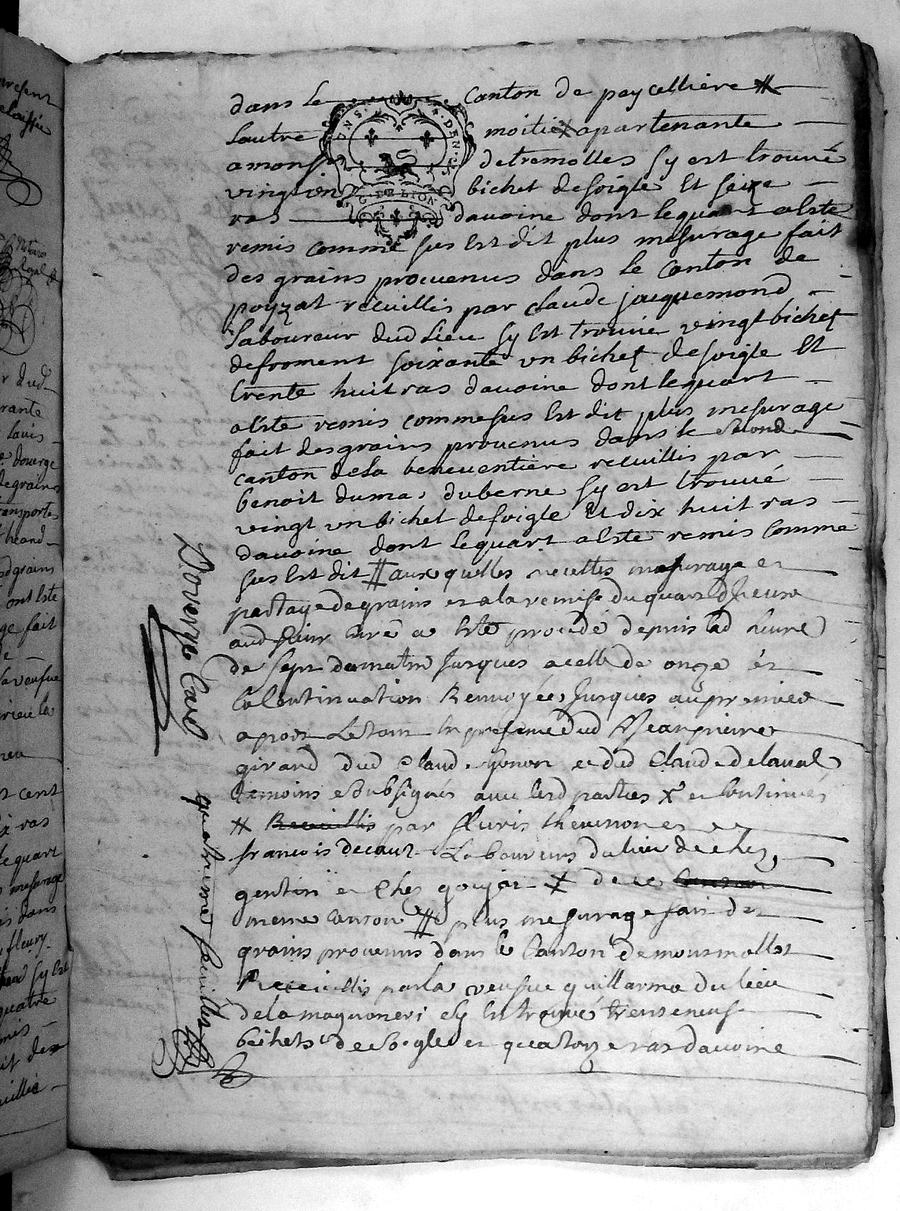 dans le canton de paycelliere #
lautre moitiex apartenante
a mons detremolles sy est trouvé
vingt un bichet desoigle Et seize
ras davoine dont lequart a esté
remis comme sus Est dit plus mesurage fait
des grains provenus dans le canton de
poyzat recuillis par claude jacquemond
laboureur dud Lieu sy Est trouvé vingt bichet
defroment soixante un bichet desoigle Et
trente huit ras davoine dont lequart
a esté remis comme sus Est dit plus mesurage
fait des grains provenus dans le second
canton dela beneventiere recuillis par
benoit dumas duberne sy est trouvé
vingt un bichet desoigle Et dix huit ras
davoine dont lequart a esté remis comme
sus Est dit # auxquelles recettes mesurage et
partage degrains et a la remise du quart
aud sieur curé a esté procédé depuis lad heure
de sept du matin Jusques a celle de onze et
la continuation Renvoyées Jusques au premier
apost Letout En presence dud Jean pierre
girard dud Claud et dud Claude delaval
temoins soubsignés avec lesd parties X et continués
# Recuillis par fleuris thevenon et
francois decaux Laboureurs du lieu de chez
gention et Ches goujat X de ce canton
meme canton # plus mesurage fait des
grains provenus dans le Canton de mousmollet
Receuillis par la veufve guillarme du lieu
de la maguoneri cy Est trouvé trente neuf
bichets de soigle et quatorze ras davoine
Doverge Curé
quatrieme feuillet
GN. LION
present
Notaire
Royal
r dud
rante
Louis
de doverge
de grains
transportes
grains
ont Esté
ge fait
la veufve
t cent
ix ras
le quart
mesurage
is dans
fleury
sy Est
quatre
it des